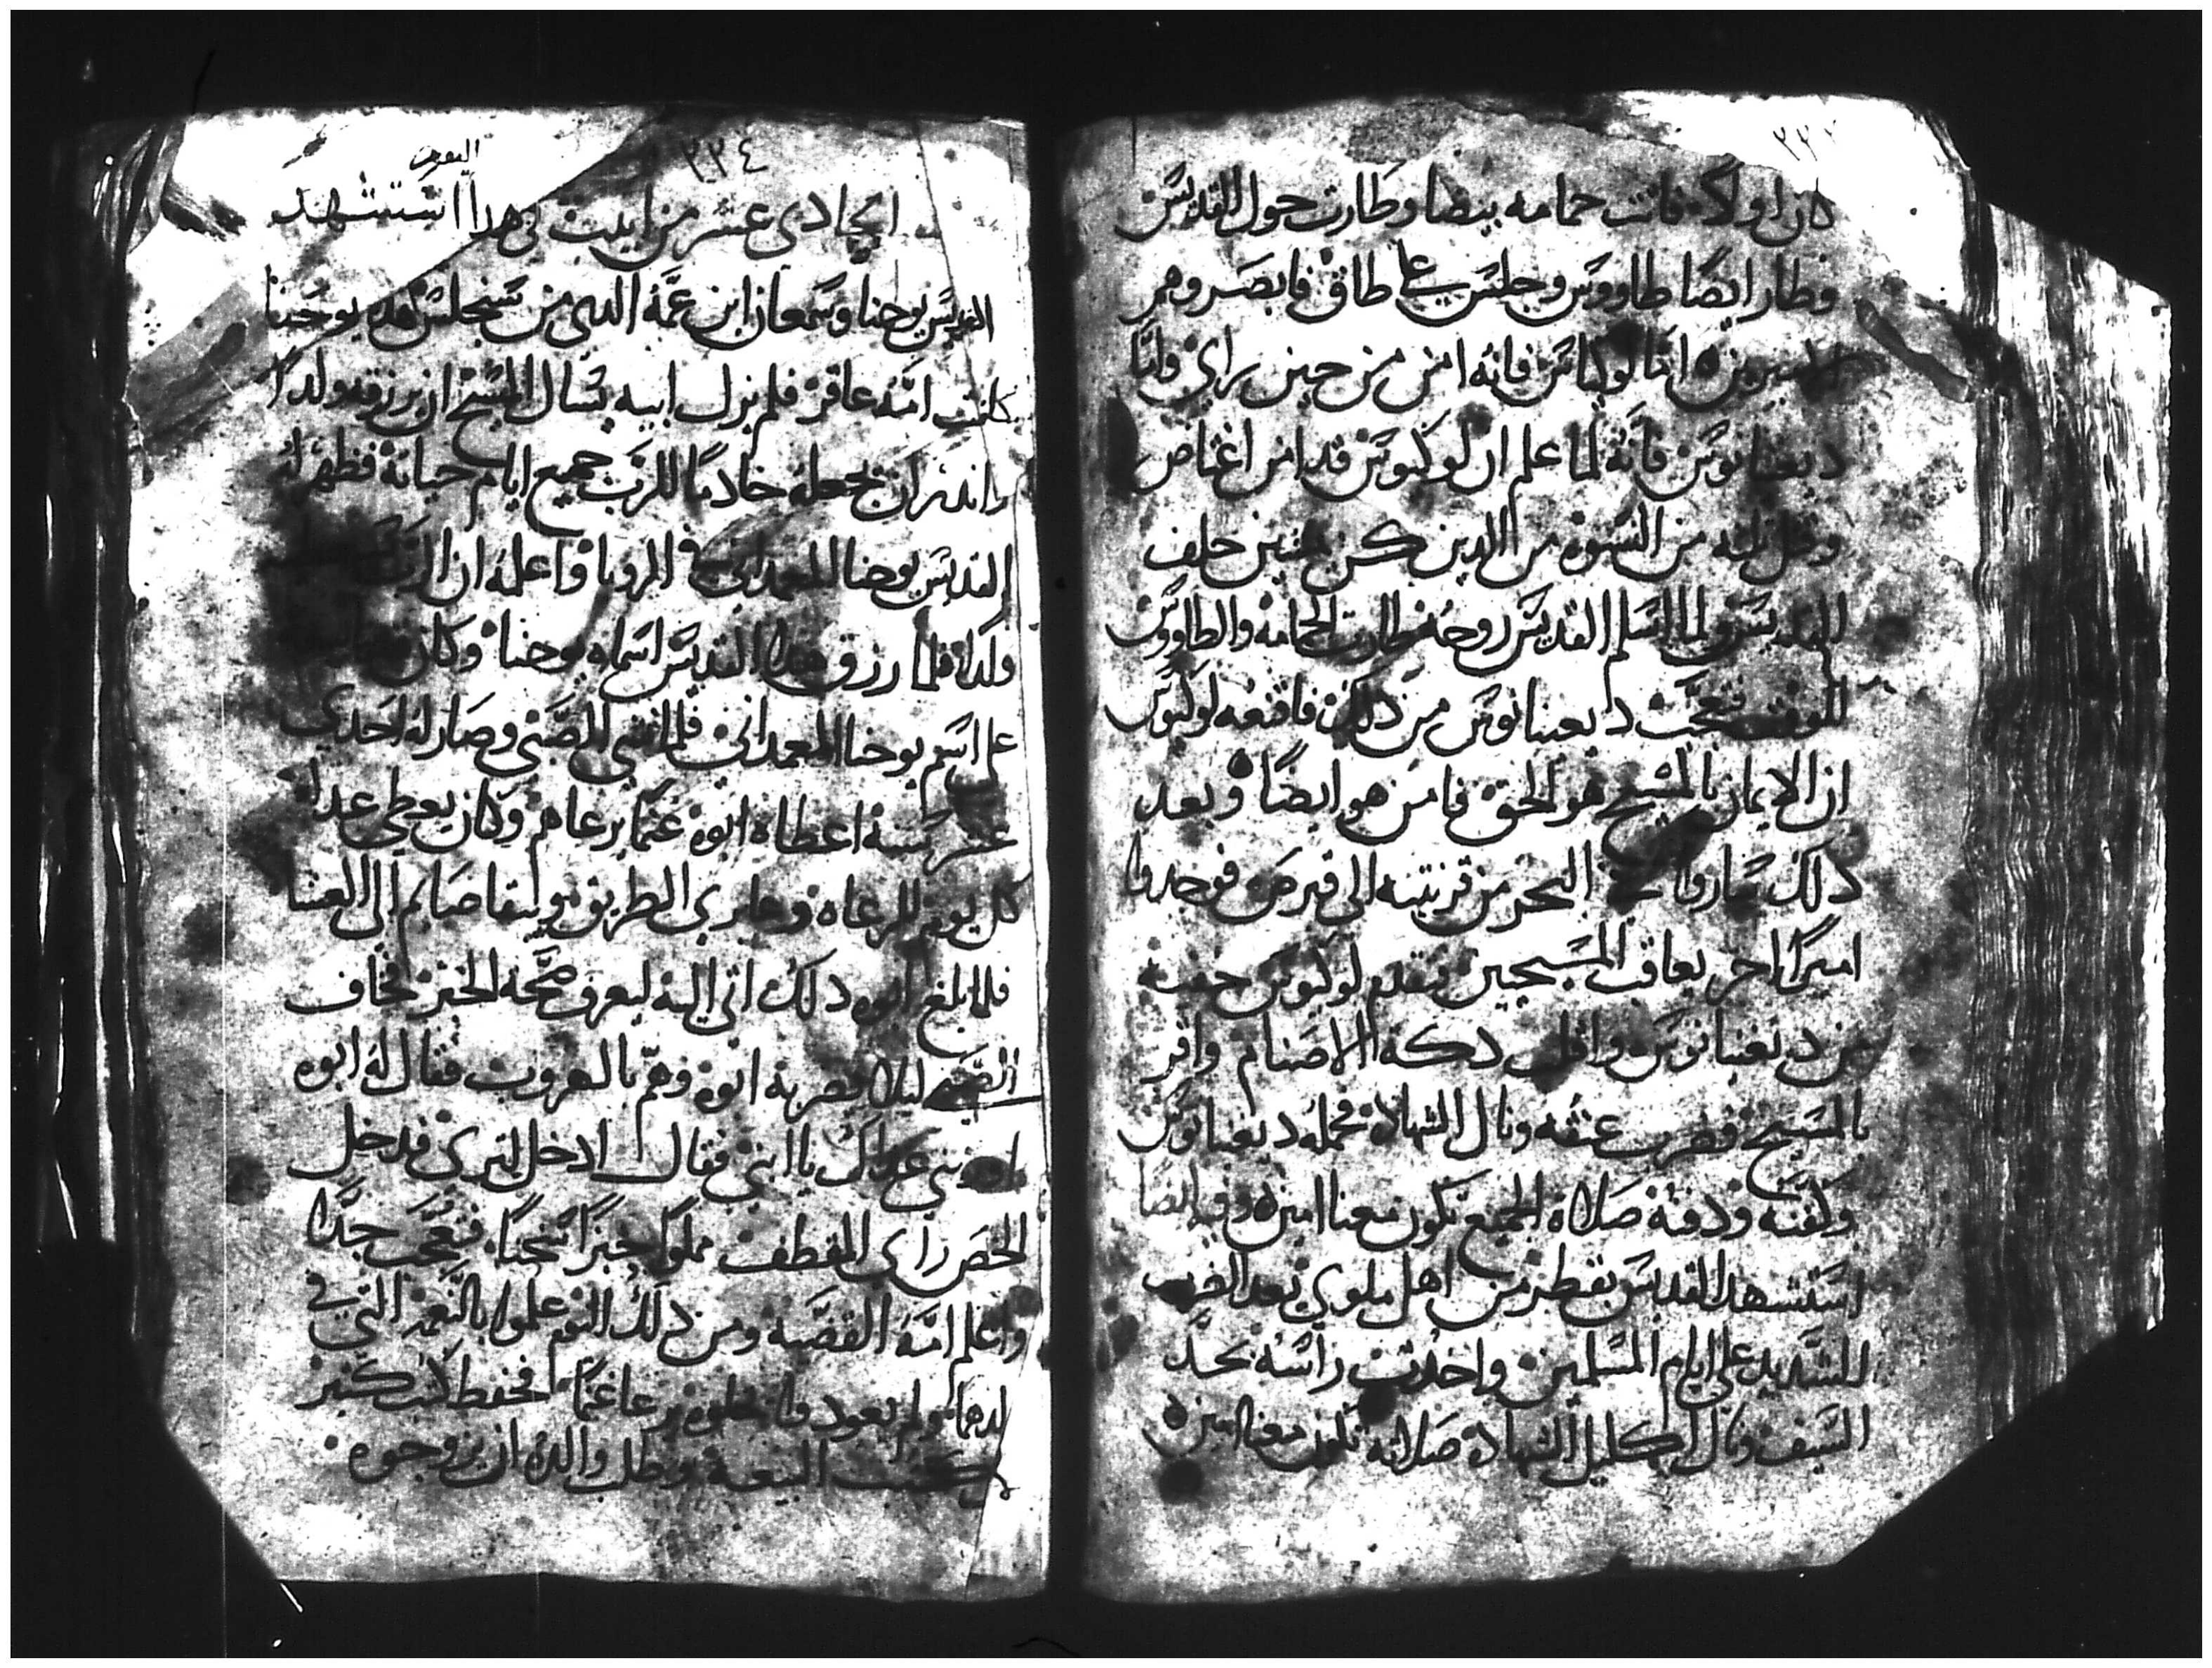 ٢٢٣
كان اولا فاتت حمامه بيضا وطارت حول القديس
وطار ايضًا طاووس وجلس على طاق فابصروهم
اما لوكيانوس فانه امن من حين راى وامّا
ديعنانوس فانه لما علم ان لوكيوس قد امن اغتاض
من النسوه من الدين كن خلف
القديس ولما اسلم القديس روحه طارت الحمامه والطاووس
للوقت فتعجب ديعنانوس من دلك فاقنعه لوكيوس
ان الايمان بالمسيح هو الحق فامن هو ايضًا وبعد
دلك ساروا في البحر من قرنتيه الى قبرص فوجدوا
اميرًا اخر يعاقب المسيحيين فتقدم لوكيوس خفيه
من ديعنانوس واقلب دكة الاصنام واقر
بالمسيح فضرب عنقه ونال الشهاده فحمله ديعنانوس
وكفنه ودفنه صلاة الجميع تكون معنا امين وفيه ايضًا
استشهد القديس بفطر من اهل ملوي بعد الضرب
الشديد على ايام المسلمين واخدت راسه بحد
السيف ونال اكليل الشهاده صلاته تكون معنا امين
٢٢٤
اليوم
الحادى عشر من ابيب فى هدا استشهد
القديس يوحنا وسمعان ابن عمّه الدى من هده يوحنا
كانت امّه عاقر فلم يزل ابيه يسال المسيح ان يرزقه ولدًا
واندر ان يجعله خادمًا للرب جميع ايام حياته فظهر له
القديس يوحنا المعمدانى فى الرويا واعلمه ان الرب
ولدًا فلما رزق هدا القديس اسماه يوحنا وكان
على اسم يوحنا المعمدانى فلما انتشى الصبى وصار له احدى
عشر سنة اعطاه ابوه غنمًا يرعاهم وكان يعطى غداه
كل يوم للرعاه وعابرى الطريق ويبقا صايم الى العشا
فلما بلغ ابوه دلك اتى اليه ليعرف صحّة الخبر فخاف
الصّبى ليلا يضربه ابوه وهمّ بالهروب فقال له ابوه
غداك يا ابنى فقال ادخل لترى فدخل
الخص راى المقطف مملوًا خبزًا سخنًا فتعجب جدًا
واعلم امّه القصّه ومن دلك اليوم علموا بالنّعمه التى فى
ولدهما ولم يعود يرعا غنمًا فحفظ كتب كثير
من كتب البيعه وطلب والده ان يزوجوه